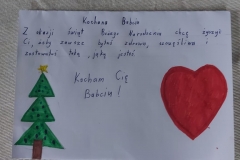 Kochana Babciu
Z okazji Świąt Bożego Narodzenia chcę życzyć
Ci, żeby zawsze byłaś zdrowa, szczęśliwa i
została taka, jaką jesteś.
Kocham Cię
Babciu!